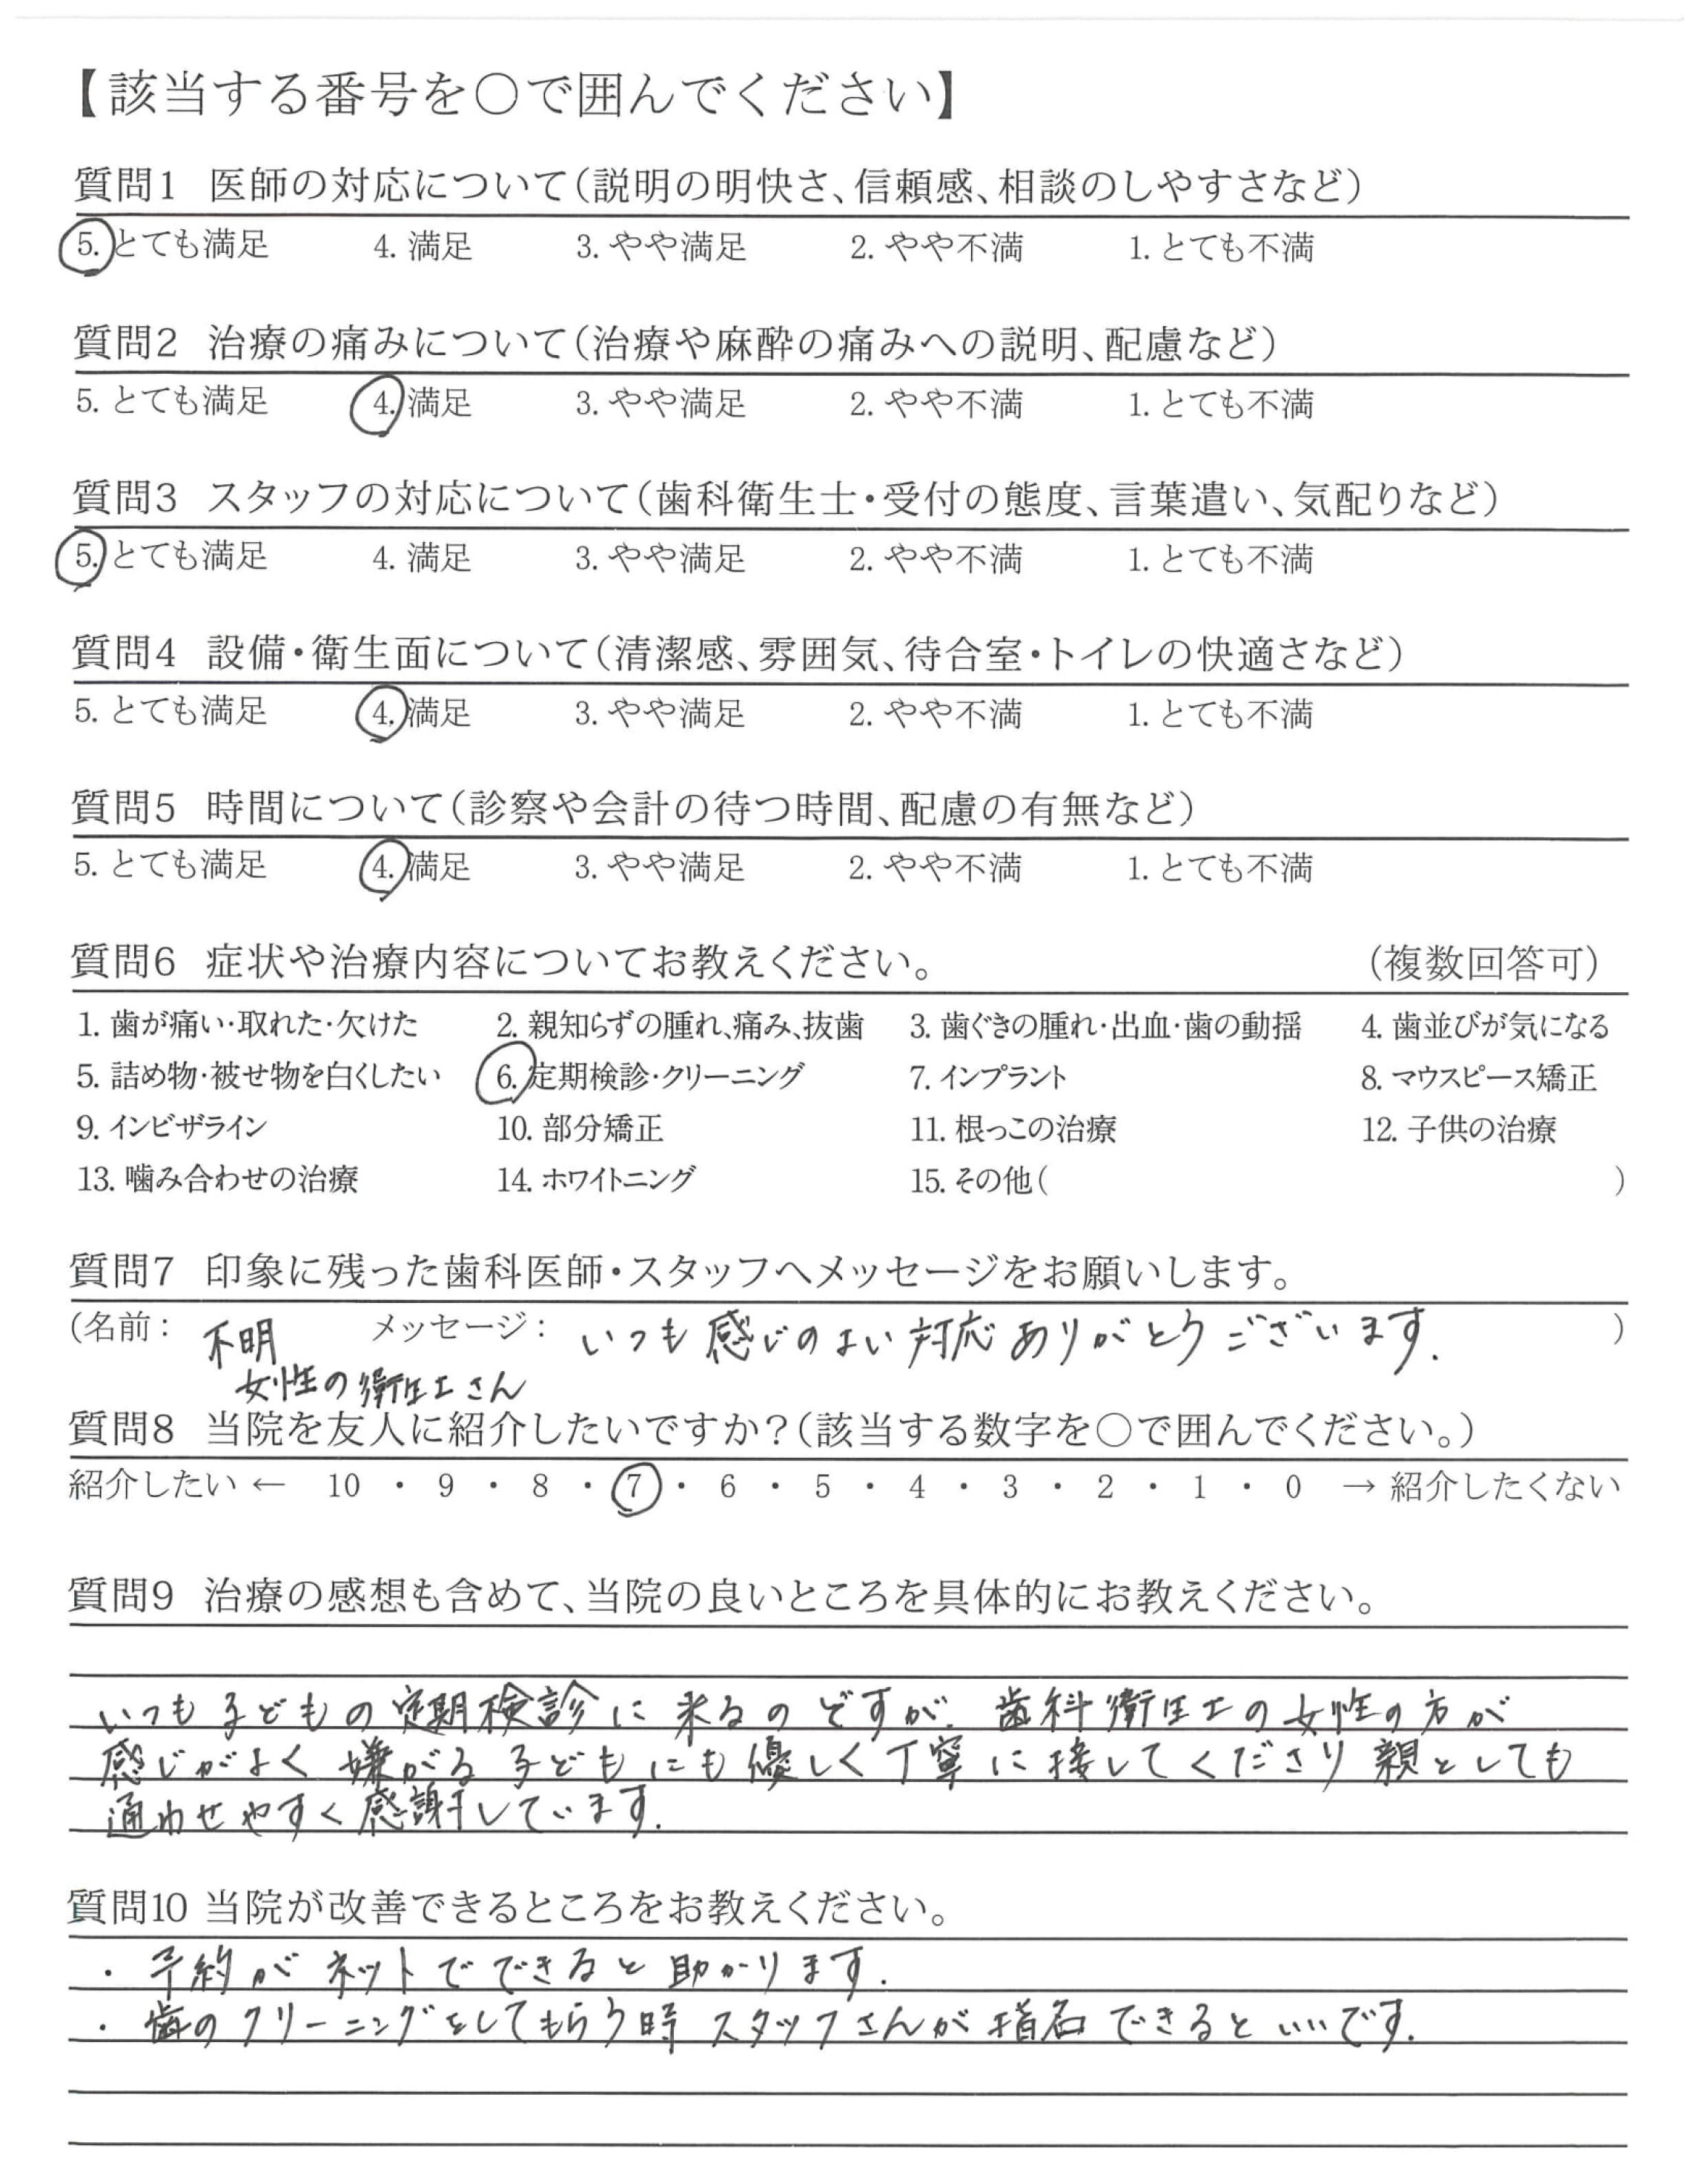 【該当する番号を○で囲んでください】
質問1 医師の対応について(説明の明快さ、信頼感、相談のしやすさなど)
5. とても満足 4. 満足 3. やや満足 2. やや不満 1. とても不満
質問2 治療の痛みについて(治療や麻酔の痛みへの説明、配慮など)
5. とても満足 4. 満足 3. やや満足 2. やや不満 1. とても不満
質問3 スタッフの対応について(歯科衛生士・受付の態度、言葉遣い、気配りなど)
5. とても満足 4. 満足 3. やや満足 2. やや不満 1. とても不満
質問4 設備・衛生面について(清潔感、雰囲気、待合室・トイレの快適さなど)
5. とても満足 4. 満足 3. やや満足 2. やや不満 1. とても不満
質問5 時間について(診察や会計の待つ時間、配慮の有無など)
5. とても満足 4. 満足 3. やや満足 2. やや不満 1. とても不満
質問6 症状や治療内容についてお教えください。 (複数回答可)
1. 歯が痛い・取れた・欠けた 2. 親知らずの腫れ、痛み、抜歯 3. 歯ぐきの腫れ・出血・歯の動揺 4. 歯並びが気になる
5. 詰め物・被せ物を白くしたい 6. 定期検診・クリーニング 7. インプラント 8. マウスピース矯正
9. インビザライン 10. 部分矯正 11. 根っこの治療 12. 子供の治療
13. 噛み合わせの治療 14. ホワイトニング 15. その他( )
質問7 印象に残った歯科医師・スタッフへメッセージをお願いします。
(名前： 不明 メッセージ： いつも感じのよい対応ありがとうございます. )
女性の衛生士さん
質問8 当院を友人に紹介したいですか？(該当する数字を○で囲んでください。)
紹介したい ← 10 ・ 9 ・ 8 ・ 7 ・ 6 ・ 5 ・ 4 ・ 3 ・ 2 ・ 1 ・ 0 → 紹介したくない
質問9 治療の感想も含めて、当院の良いところを具体的にお教えください。
いつも子どもの定期検診に来るのですが、歯科衛生士の女性の方が
感じがよく嫌がる子どもにも優しく丁寧に接してくださり親としても
通わせやすく感謝しています.
質問10 当院が改善できるところをお教えください。
・予約がネットでできると助かります.
・歯のクリーニングをしてもらう時スタッフさんが指名できるといいです.